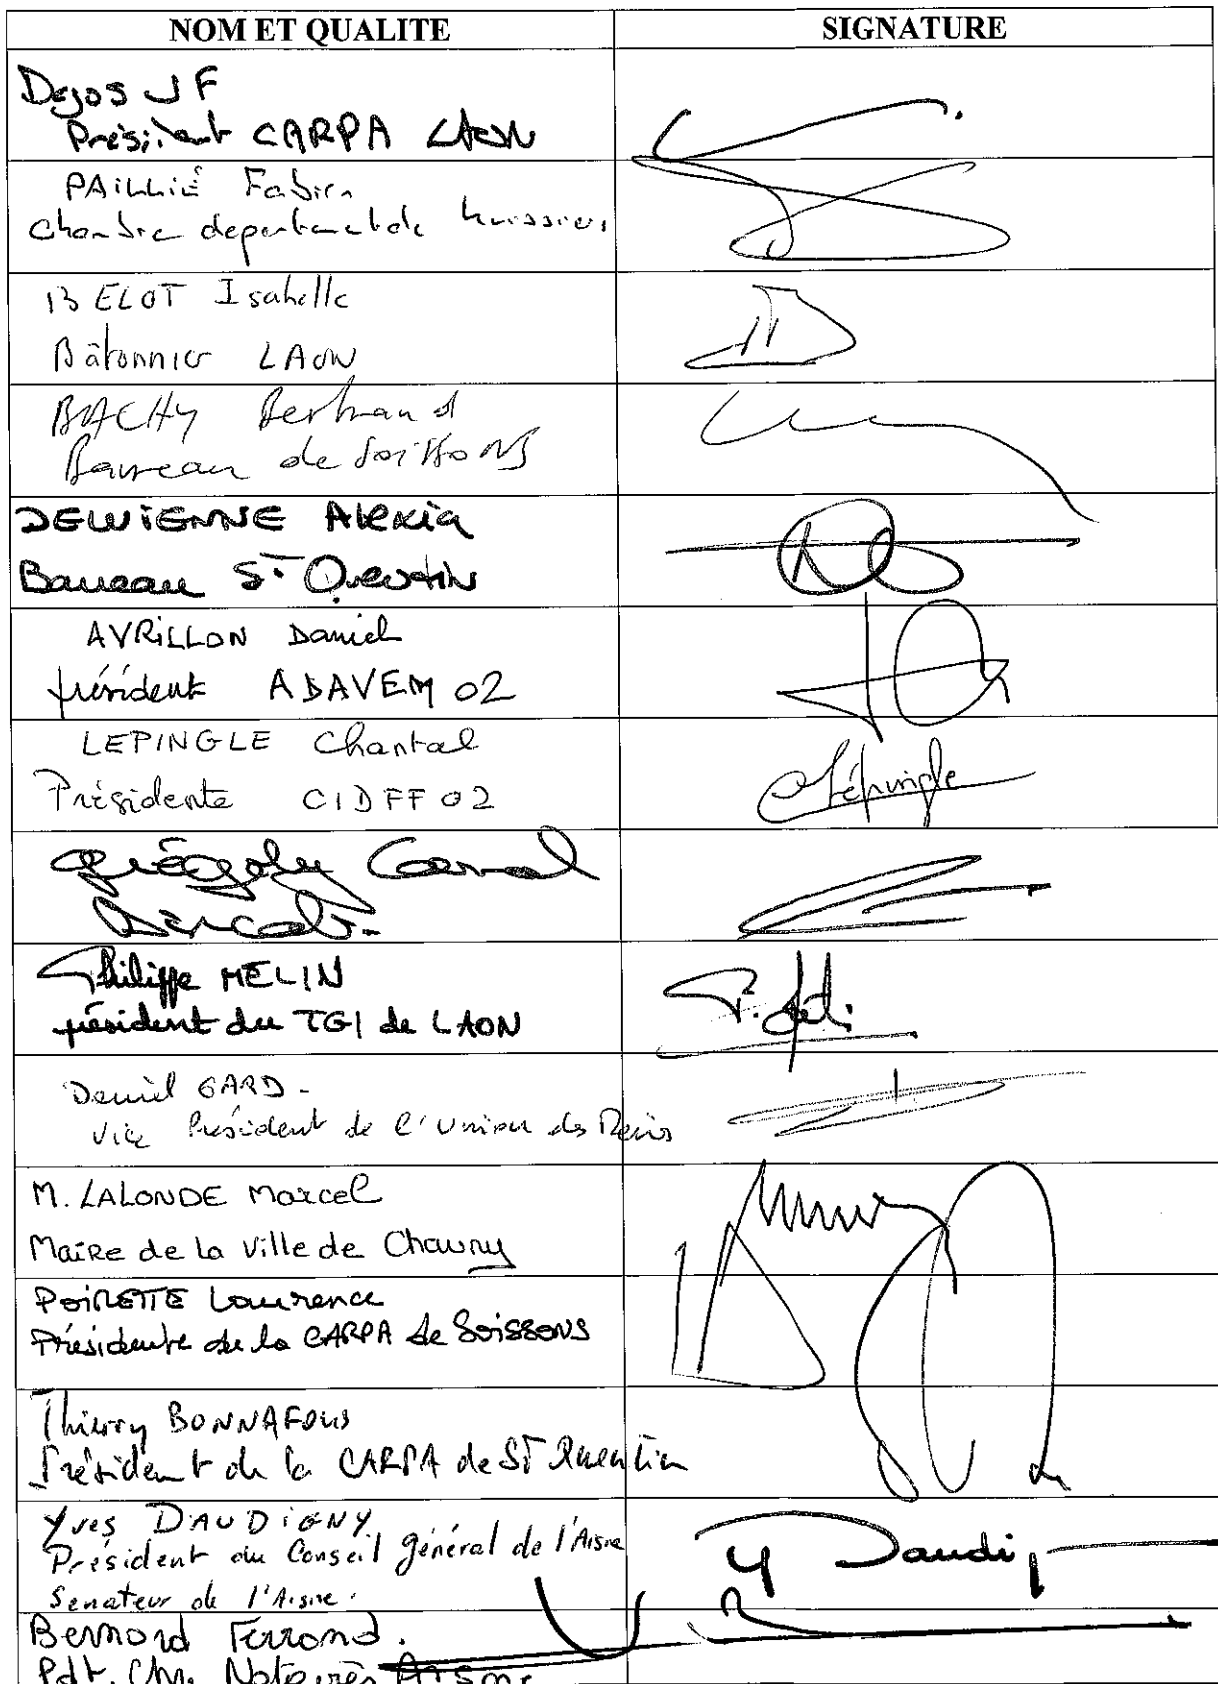 NOM ET QUALITE
SIGNATURE
Dejos JF
Président CARPA LAON
PAILLIÉ Fabien
Chambre departementale huissiers
BELOT Isabelle
Bâtonnier LAON
BACHY Bertrand
Barreau de Soissons
DEWIENNE Alexia
Barreau St Quentin
AVRILLON Daniel
président ADAVEM 02
LEPINGLE Chantal
Présidente CIDFF 02
Lépingle
Grégoby
Philippe MELIN
président du TGI de LAON
Daniel GARD -
Vice Président de l'Union des Maires
M. LALONDE Marcel
Maire de la Ville de Chauny
POIRETTE Laurence
Présidente de la CARPA de Soissons
Thierry BONNAFOUS
Président de la CARPA de St Quentin
Yves DAUDIGNY
Président du Conseil général de l'Aisne
Senateur de l'Aisne.
Y Daudig
Bernard Ferrand.
Pdt. Ch. Notaires Aisne